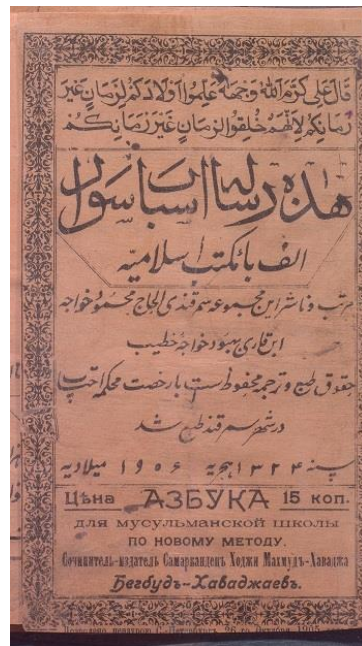 قال علی کرم الله وجهه علموا اولادکم لزمان غیر
زمانکم لانهم خلقوا لزمان غیر زمانکم
هذه رساله اسباب سواد
الف با مکتب اسلامیه
مرتب و ناشر این مجموعه سمرقندی الحاج محمود خواجه
ابن قاری بهبود خواجه خطیب
حقوق طبع و ترجمه محفوظ است با رخصت محکمه
در شهر سمرقند طبع شد
سنه ۱۳۲۴ هجریه ۱۹۰۶ میلادیه
Цѣна АЗБУКА 15 коп.
для мусульманской школы
ПО НОВОМУ МЕТОДУ.
Сочинитель-издатель Самаркандецъ Ходжи Махмудъ-Хаваджа
Бегбудъ-Хаваджаевъ.
Дозволено цензурою С.-Петербургъ, 26-го Октября 1905